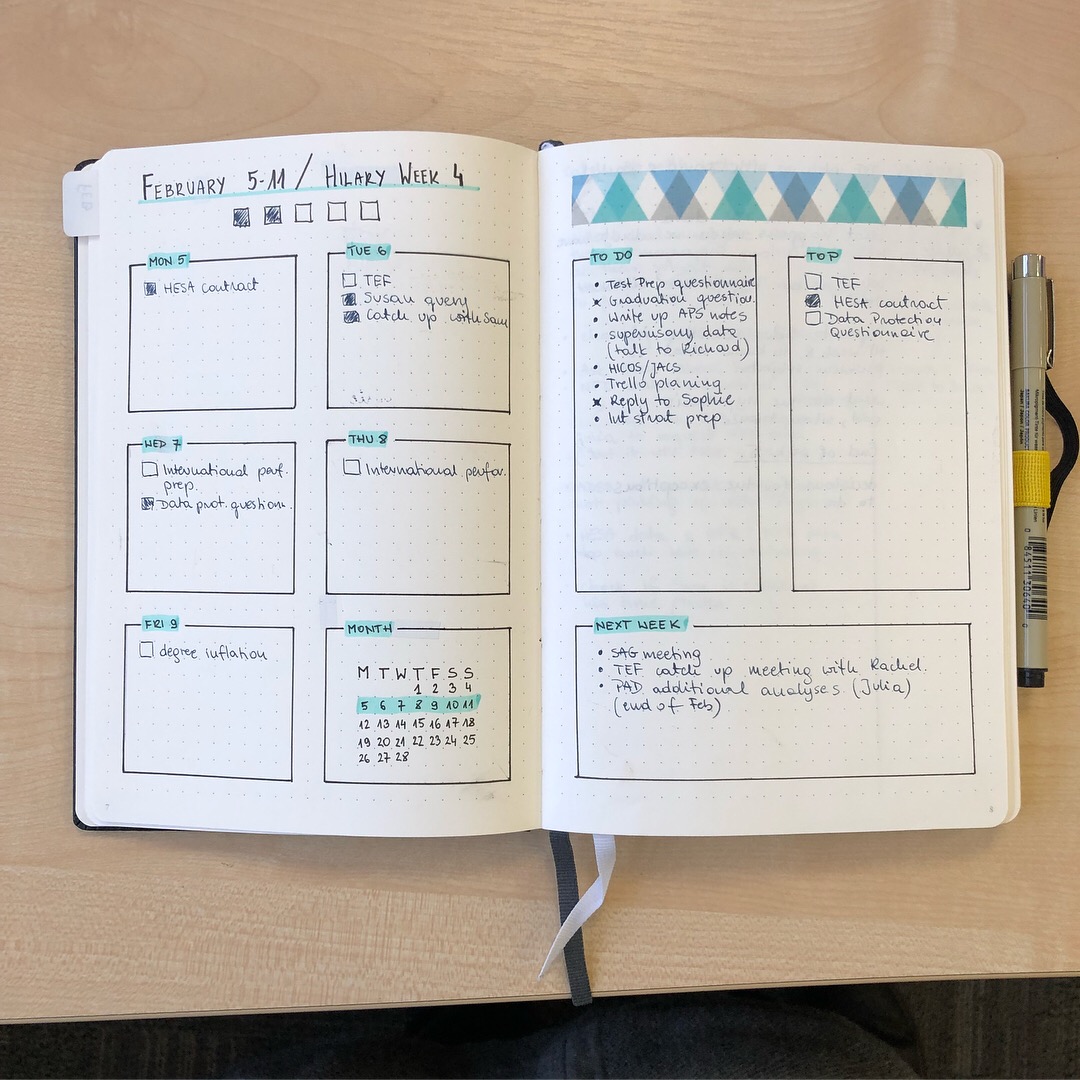 FEBRUARY 5-11 / HILARY WEEK 4
MON 5
HESA contract
TUE 6
TEF
Susan query
Catch up with Sam
WED 7
International perf.
prep.
Data prot. question.
THU 8
International perfor.
FRI 9
degree inflation
MONTH
M T W T F S S
1 2 3 4
5 6 7 8 9 10 11
12 13 14 15 16 17 18
19 20 21 22 23 24 25
26 27 28
7
TO DO
Test Prep questionnaire
Graduation question.
Write up APS notes
supervisory data
(talk to Richard)
HICOS/JACS
Trello planing
Reply to Sophie
Int strat prep
TOP
TEF
HESA contract
Data Protection
Questionnaire
NEXT WEEK
SAG meeting
TEF catch up meeting with Rachel.
PAD additional analyses (Julia)
(end of Feb)